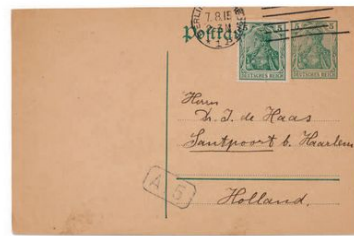 7.8.15
Postka
DEUTSCHES REICH
DEUTSCHES REICH
Herrn
Dr. J. de Haas
Santpoort b. Haarlem
Holland.
A 5